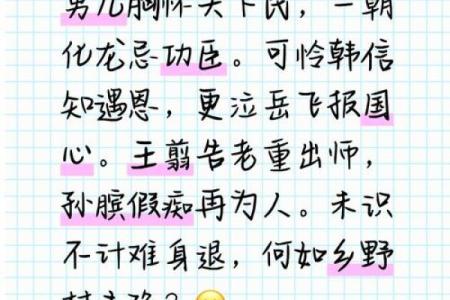 男儿胸怀天下民，一朝
化龙忌功臣。可怜韩信
知遇恩，更泣岳飞报国
心。王翦告老重出师，
孙膑假痴再为人。未识
不计难身退，何如乡野